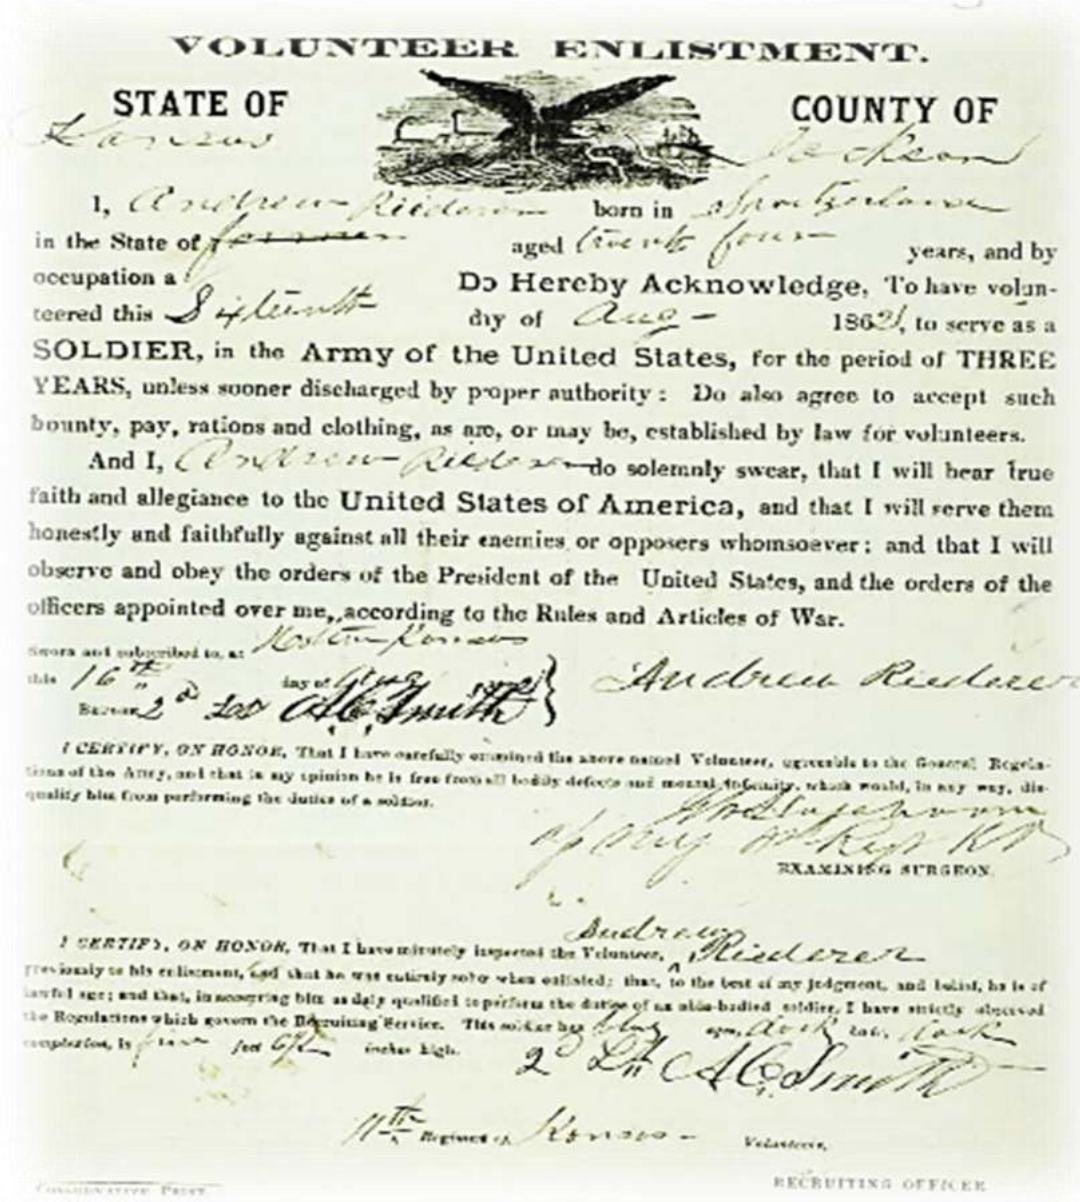 VOLUNTEER ENLISTMENT.
STATE OF COUNTY OF
Kansas Jackson
I, Andrew Riederer born in Switzerland
in the State of farmer aged twenty four years, and by
occupation a Do Hereby Acknowledge, To have volun-
teered this Sixteenth day of Aug 1862, to serve as a
SOLDIER, in the Army of the United States, for the period of THREE
YEARS, unless sooner discharged by proper authority: Do also agree to accept such
bounty, pay, rations and clothing, as are, or may be, established by law for volunteers.
And I, Andrew Riederer do solemnly swear, that I will bear true
faith and allegiance to the United States of America, and that I will serve them
honestly and faithfully against all their enemies or opposers whomsoever; and that I will
observe and obey the orders of the President of the United States, and the orders of the
officers appointed over me, according to the Rules and Articles of War.
Sworn and subscribed to, at Kansas
this 16th day of Aug 1862 Andrew Riederer
Before 2d A C. Smith
I CERTIFY, ON HONOR, That I have carefully examined the above named Volunteer, agreeable to the General Regula-
tions of the Army, and that in my opinion he is free from all bodily defects and mental infirmity, which would, in any way, dis-
qualify him from performing the duties of a soldier.
EXAMINING SURGEON.
Andrew
I CERTIFY, ON HONOR, That I have minutely inspected the Volunteer, Riederer
previously to his enlistment, and that he was entirely sober when enlisted; that, to the best of my judgment, and belief, he is of
lawful age; and that, in accepting him as duly qualified to perform the duties of an able-bodied soldier, I have strictly observed
the Regulations which govern the Recruiting Service. This soldier has eyes, dark hair, dark
complexion, is five feet 6½ inches high.
2d Lt A C. Smith
11th Regiment of Kansas Volunteers,
CONSERVATIVE PRINT. RECRUITING OFFICER